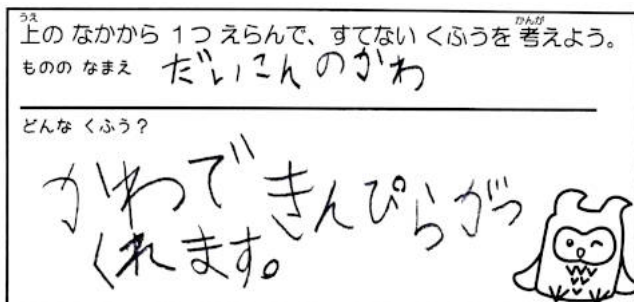 上の なかから 1つ えらんで、すてない くふうを 考えよう。
ものの なまえ だいこんのかわ
どんな くふう?
かわできんぴらがつ
くれます。